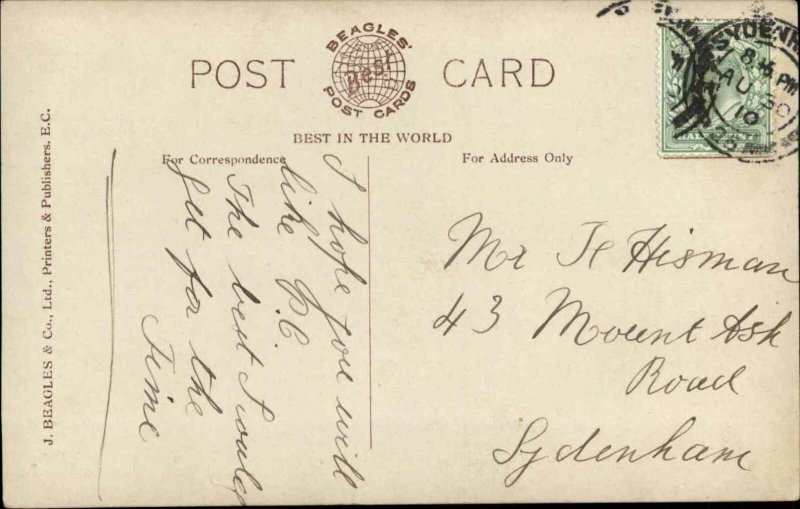 POST CARD
BEAGLES'
Best
POST CARDS
BEST IN THE WORLD
For Correspondence
For Address Only
J. BEAGLES & Co., Ltd., Printers & Publishers, E.C.
I hope you will
like P.C.
The best I could
get for the
Time
Mr H Hisman
43 Mount Ash
Road
Sydenham
SYDENH
8.45 PM
AU 30
10